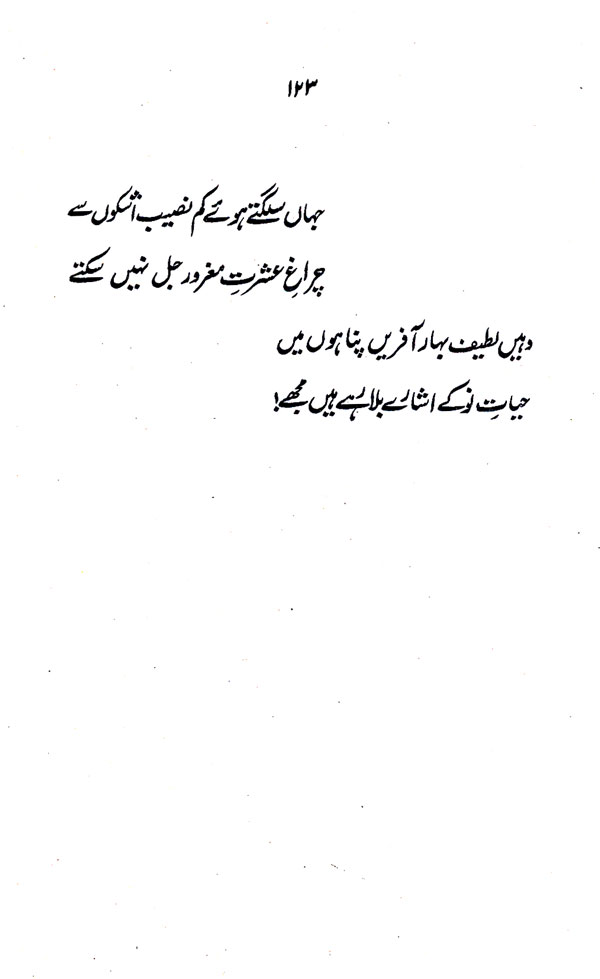 ۱۲۳
جہاں سلگتے ہوئے کم نصیب اشکوں سے
چراغِ عشرتِ مغرور جل نہیں سکتے
وہیں لطیف بہار آفریں پناہوں میں
حیاتِ نو کے اشارے بلا رہے ہیں مجھے!